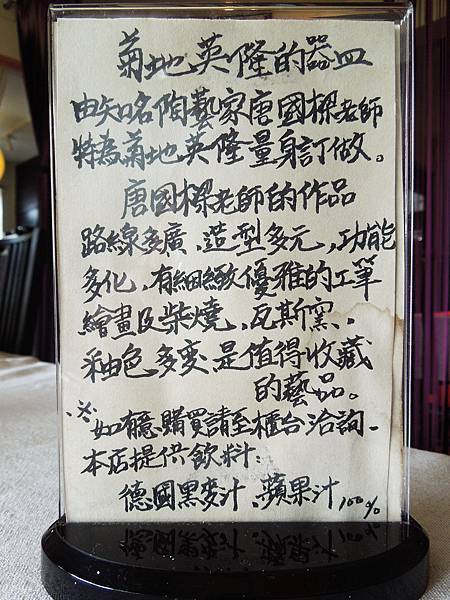 菊地英隆的器皿
由知名陶藝家唐國樑老師
特為菊地英隆量身訂做。
唐國樑老師的作品
路線多廣、造型多元,功能
多化,有細緻優雅的工筆
繪畫及柴燒、瓦斯窯、。
釉色多變、是值得收藏
的藝品。
※如有意購買請至櫃台洽詢、
本店提供飲料:
德國黑麥汁、蘋果汁100%